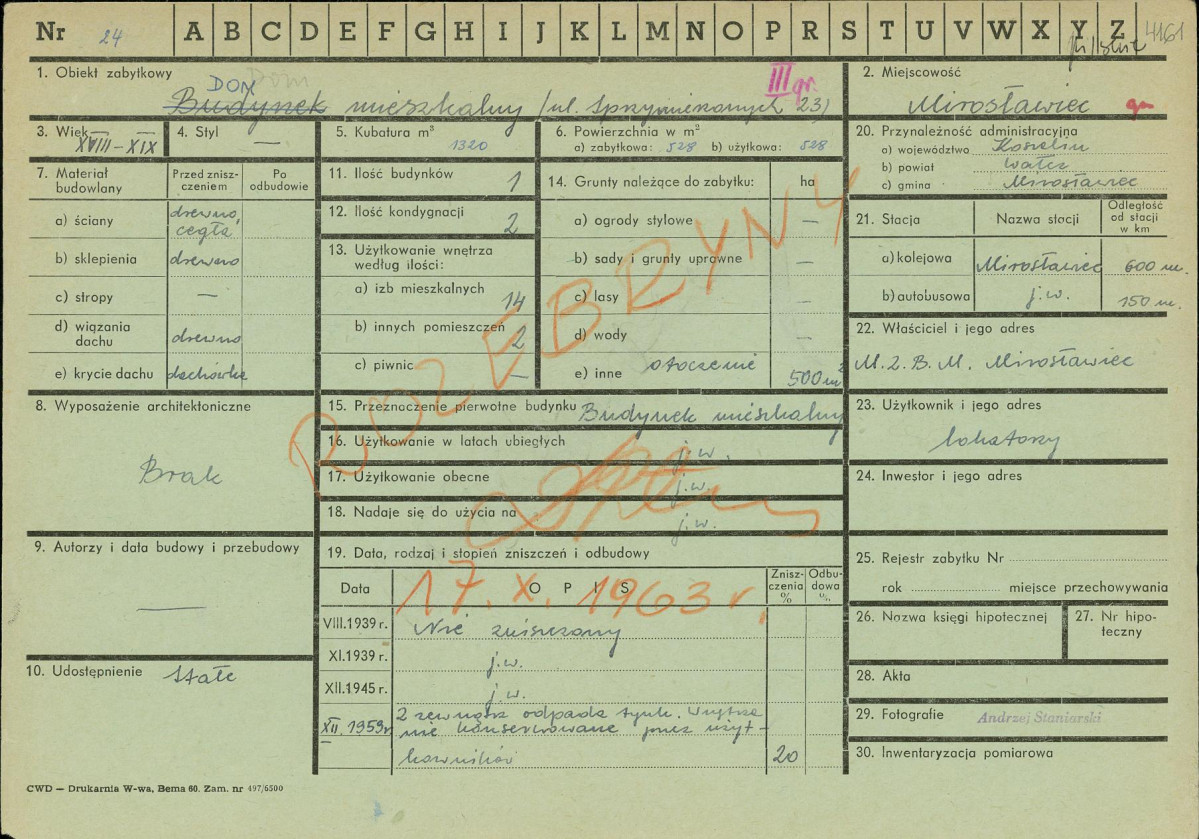 Nr 24 A B C D E F G H I J K L M N O P R S T U V W X Y Z 4161
1. Obiekt zabytkowy
DOM Dom
Budynek mieszkalny /ul. Sprzymierzonych 23/
III gr.
2. Miejscowość
Mirosławiec gm
3. Wiek XVIII – XIX
4. Styl —
5. Kubatura m³ 1320
6. Powierzchnia w m²
a) zabytkowa: 528 b) użytkowa: 528
20. Przynależność administracyjna
a) województwo Koszalin
b) powiat Wałcz
c) gmina Mirosławiec
7. Materiał budowlany
Przed znisz-
czeniem
Po
odbudowie
a) ściany drewno, cegła
b) sklepienia drewno
c) stropy —
d) wiązania dachu drewno
e) krycie dachu dachówka
11. Ilość budynków 1
12. Ilość kondygnacji 2
13. Użytkowanie wnętrza
według ilości:
a) izb mieszkalnych 14
b) innych pomieszczeń 2
c) piwnic —
14. Grunty należące do zabytku: ha
a) ogrody stylowe —
b) sady i grunty uprawne —
c) lasy —
d) wody —
e) inne otoczenie 500 m²
21. Stacja Nazwa stacji
Odległość
od stacji
w km
a) kolejowa Mirosławiec 600 m.
b) autobusowa j.w. 150 m.
22. Właściciel i jego adres
M.Z.B.M. Mirosławiec
8. Wyposażenie architektoniczne
Brak
15. Przeznaczenie pierwotne budynku Budynek mieszkalny
16. Użytkowanie w latach ubiegłych j.w.
17. Użytkowanie obecne j.w.
18. Nadaje się do użycia na j.w.
23. Użytkownik i jego adres
lokatorzy
24. Inwestor i jego adres
ROZEBRYNY
17. X. 1963 r.
9. Autorzy i data budowy i przebudowy
—
19. Data, rodzaj i stopień zniszczeń i odbudowy
Data OPIS
Znisz-
czenia
%
Odbu-
dowa
%
VIII.1939 r. Nie zniszczony
XI.1939 r. j.w.
XII.1945 r. j.w.
XII.1959r Z zewnątrz odpada tynk. Wnętrze
nie konserwowane przez użyt-
kowników 20
25. Rejestr zabytku Nr
rok miejsce przechowywania
26. Nazwa księgi hipotecznej
27. Nr hipo-
teczny
10. Udostępnienie Stałe
28. Akta
29. Fotografie Andrzej Staniarski
30. Inwentaryzacja pomiarowa
CWD — Drukarnia W-wa, Bema 60. Zam. nr 497/6500